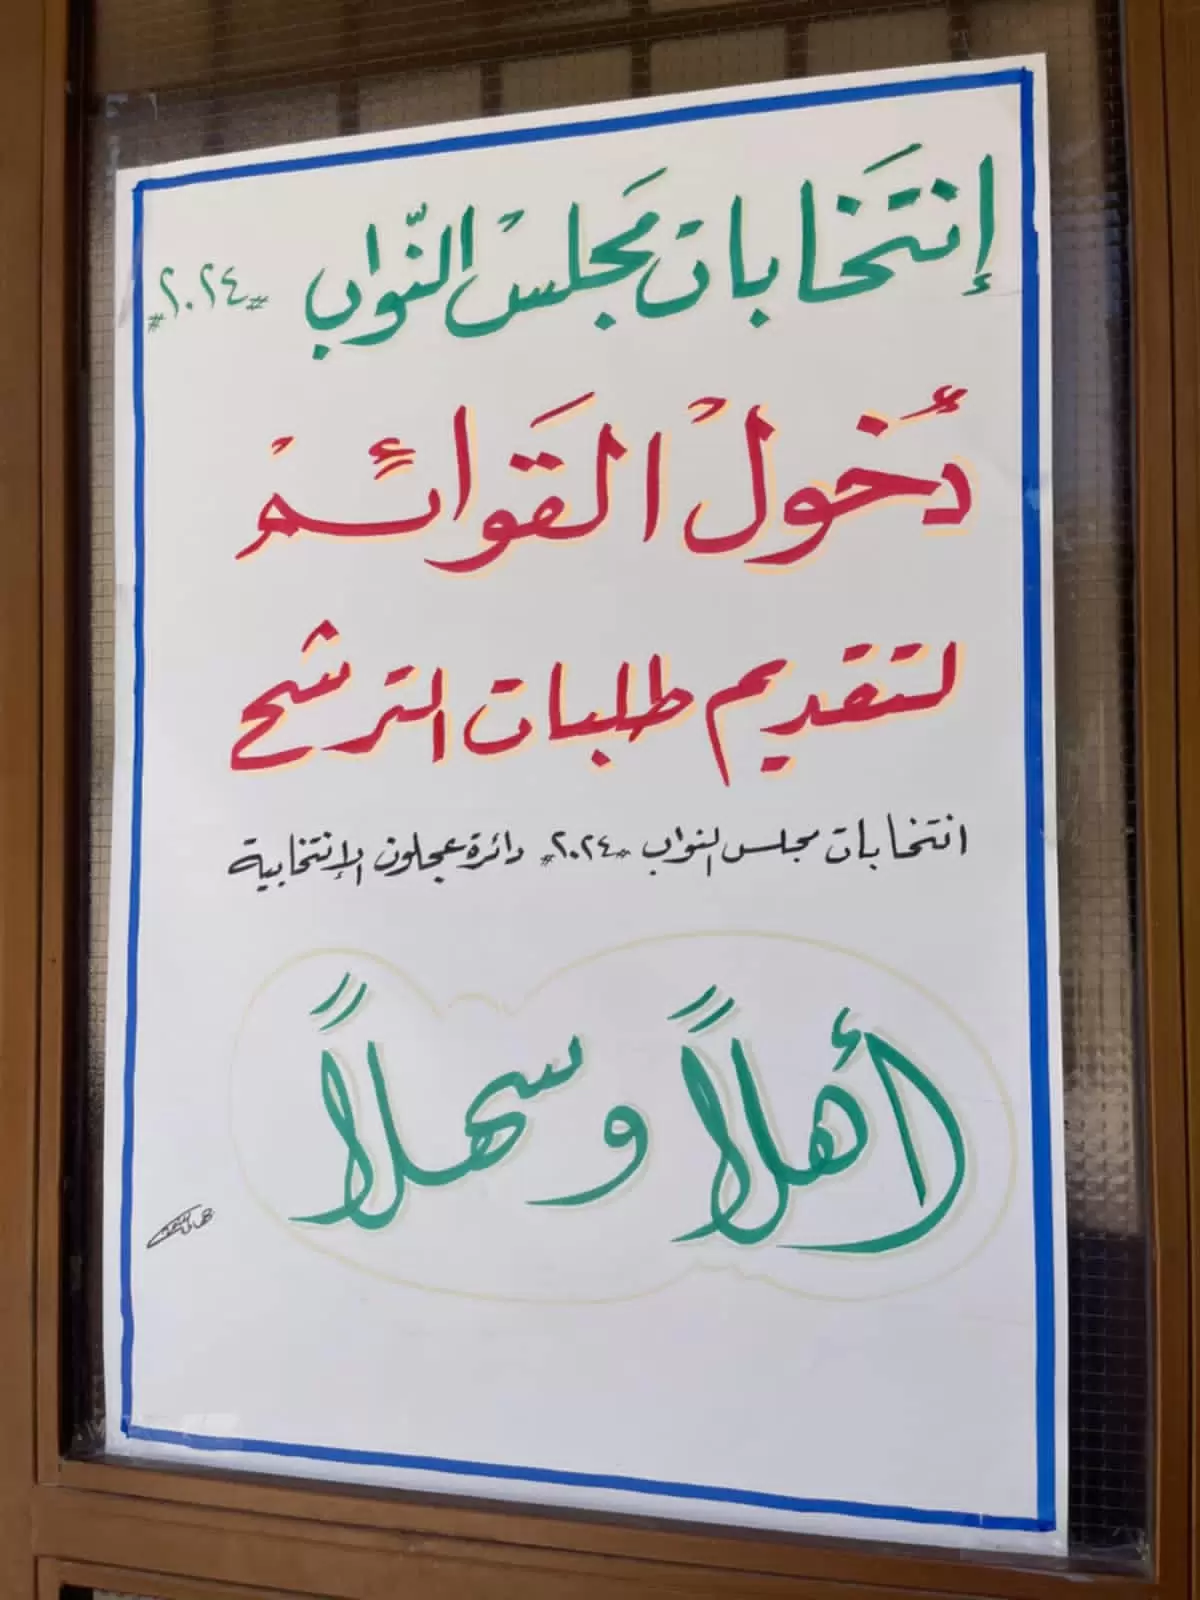 إنتَخابات مَجلسْ النّواب #٢٠٢٤#
دُخولْ القَوائِمْ
لتقديم طلبات الترشح
انتخابات مجلس النواب #٢٠٢٤# دائرة عجلون الإنتخابية
أهلاً وسهلاً